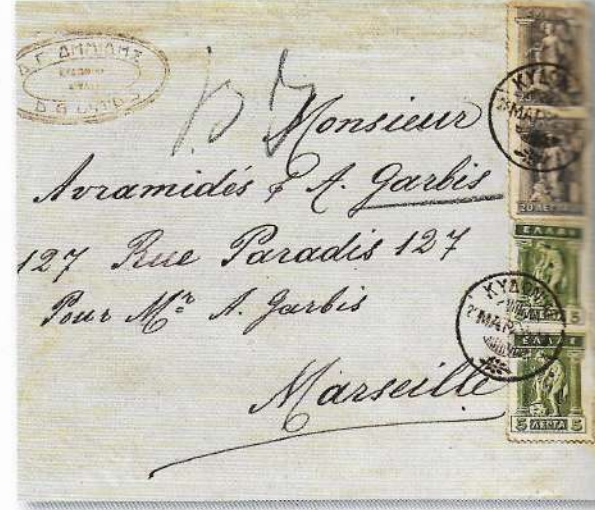 Monsieur
Avramidés & A. Garbis
127 Rue Paradis 127
Pour Mr A. Garbis
Marseille
ΚΥΔΩΝ
ΜΑΡ
20 ΛΕΠΤΑ
ΕΛΛΑΣ
ΚΥΔΩΝΙ
ΜΑΡ
5
ΕΛΛΑΣ
5 ΛΕΠΤΑ 5